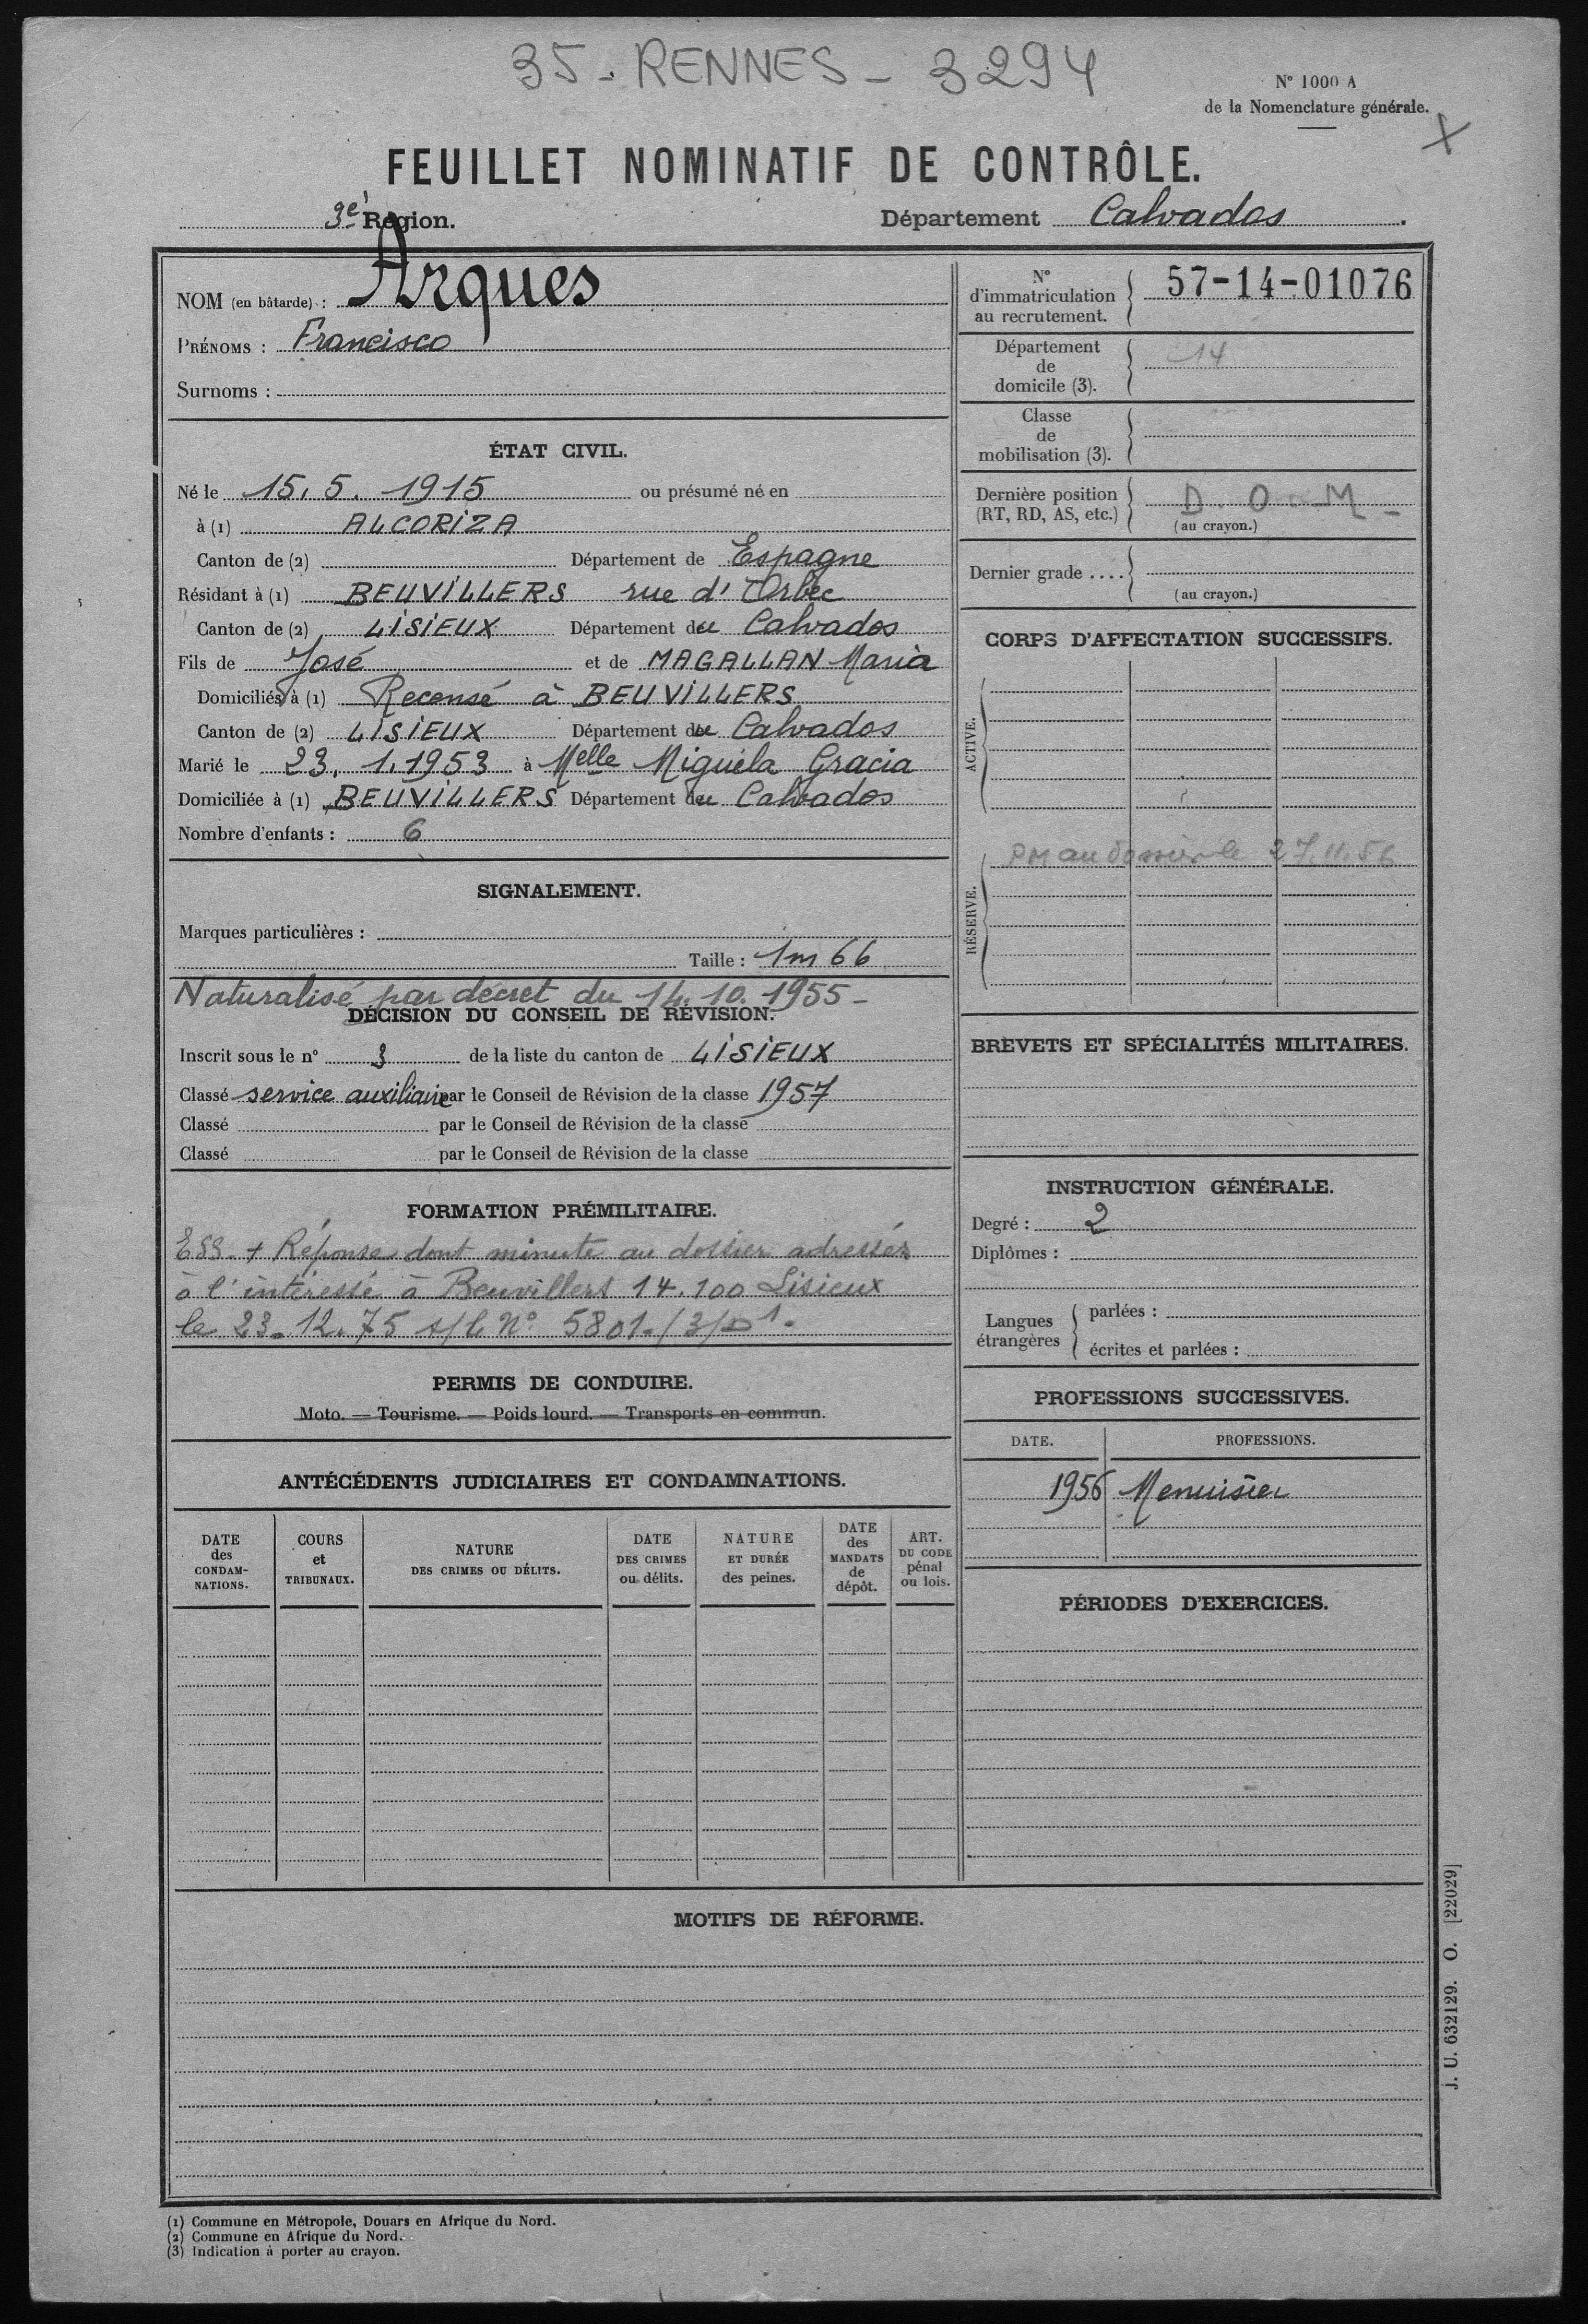 35 - RENNES - 3294
N° 1000 A
de la Nomenclature générale.
X
FEUILLET NOMINATIF DE CONTRÔLE.
3e Région.
Département Calvados.
NOM (en bâtarde) : Arques
PRÉNOMS : Francisco
Surnoms :
ÉTAT CIVIL.
Né le 15. 5. 1915 ou présumé né en
à (1) ALCORIZA
Canton de (2) Département de Espagne
Résidant à (1) BEUVILLERS rue d'Orbec
Canton de (2) LISIEUX Département du Calvados
Fils de José et de MAGALLAN Maria
Domiciliés à (1) Recensé à BEUVILLERS
Canton de (2) LISIEUX Département du Calvados
Marié le 23. 1. 1953 à Melle Miguela Gracia
Domiciliée à (1) BEUVILLERS Département du Calvados
Nombre d'enfants : 6
SIGNALEMENT.
Marques particulières :
Taille : 1m 66
Naturalisé par décret du 14. 10. 1955 -
DÉCISION DU CONSEIL DE RÉVISION.
Inscrit sous le n° 3 de la liste du canton de LISIEUX
Classé service auxiliaire par le Conseil de Révision de la classe 1957
Classé par le Conseil de Révision de la classe
Classé par le Conseil de Révision de la classe
FORMATION PRÉMILITAIRE.
ESS + Réponse dont minute au dossier adressés
à l'intéressé à Beuvillers 14.100 Lisieux
le 23.12.75 N° 5801
PERMIS DE CONDUIRE.
Moto. — Tourisme. — Poids lourd. — Transports en commun.
ANTÉCÉDENTS JUDICIAIRES ET CONDAMNATIONS.
DATE des CONDAM-NATIONS.
COURS et TRIBUNAUX.
NATURE DES CRIMES OU DÉLITS.
DATE DES CRIMES ou délits.
NATURE ET DURÉE des peines.
DATE des MANDATS de dépôt.
ART. DU CODE pénal ou lois.
N° d'immatriculation au recrutement. 57-14-01076
Département de domicile (3). 14
Classe de mobilisation (3).
Dernière position (RT, RD, AS, etc.) D. O. M -
(au crayon.)
Dernier grade ....
(au crayon.)
CORPS D'AFFECTATION SUCCESSIFS.
ACTIVE.
RÉSERVE.
PM au dossier le 27.11.56
BREVETS ET SPÉCIALITÉS MILITAIRES.
INSTRUCTION GÉNÉRALE.
Degré : 2
Diplômes :
Langues étrangères
parlées :
écrites et parlées :
PROFESSIONS SUCCESSIVES.
DATE. PROFESSIONS.
1956 Menuisier
PÉRIODES D'EXERCICES.
MOTIFS DE RÉFORME.
J. U. 632129. O. [22029]
(1) Commune en Métropole, Douars en Afrique du Nord.
(2) Commune en Afrique du Nord.
(3) Indication à porter au crayon.